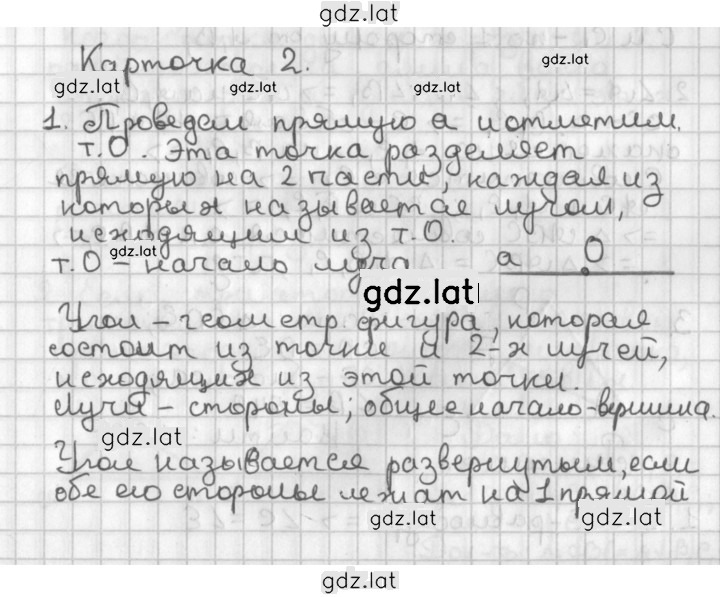 gdz.lat
Карточка 2.
gdz.lat
gdz.lat gdz.lat gdz.lat
1. Проведем прямую а и отметим
т.О. Эта точка разделяет
прямую на 2 части, каждая из
которых называется лучом,
исходящим из т.О.
gdz.lat
т.О – начало луча а О
gdz.lat
Угол – геометр. фигура, которая
состоит из точки и 2-х лучей,
исходящих из этой точки.
Лучи – стороны; общее начало-вершина.
gdz.lat
Угол называется развернутым, если
обе его стороны лежат на 1 прямой
gdz.lat gdz.lat
gdz.lat